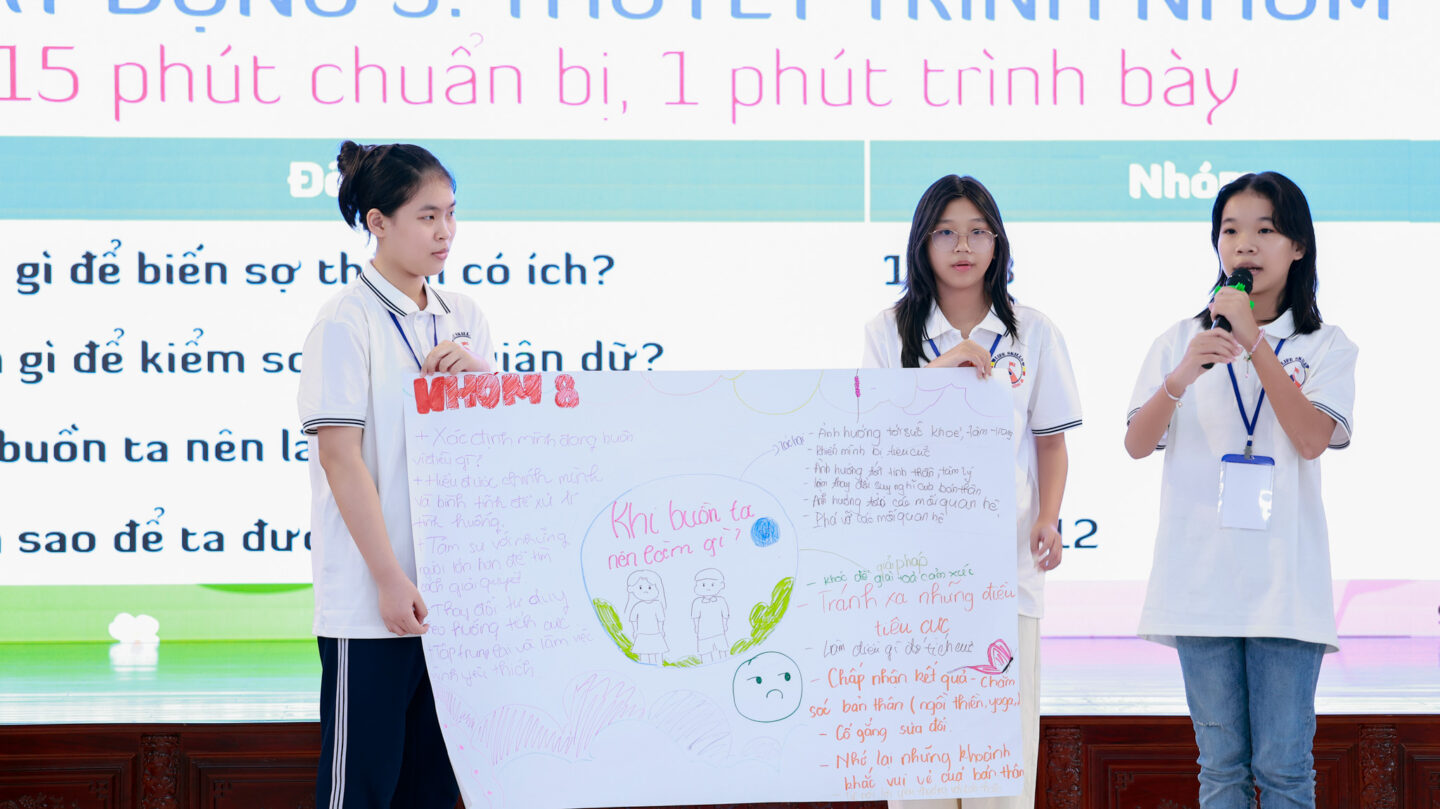 ẠT ĐỘNG 3: THUYẾT TRÌNH NHÓM
15 phút chuẩn bị, 1 phút trình bày
Nhóm
gì để biến sợ th có ích?
gì để kiểm so giận dữ?
buồn ta nên là
sao để ta đượ
12
NHÓM 8
+ Xác định mình đang buồn
vì điều gì?
+ Hiểu được chính mình
và bình tĩnh để xử lí
tình huống.
+ Tâm sự với những
người lớn hơn để tìm
cách giải quyết
Thay đổi tư duy
theo hướng tích cực
+ Tập trung và làm việc
mình yêu thích
Khi buồn ta
nên làm gì?
- Ảnh hưởng tới sức khoẻ, tâm trạng
- Khiến mình bị tiêu cực
- Ảnh hưởng tới tinh thần, tâm lý
- làm thay đổi suy nghĩ của bản thân
- Ảnh hưởng tới các mối quan hệ
- Phá vỡ các mối quan hệ
giải pháp
- khóc để giải toả cảm xúc
- Tránh xa những điều
tiêu cực
- Làm điều gì đó tích cực
- Chấp nhận kết quả - chăm
sóc bản thân (ngồi thiền, yoga,)
- Cố gắng sửa đổi.
- Nhớ lại những khoảnh
khắc vui vẻ của bản thân
LIFE SKILLS